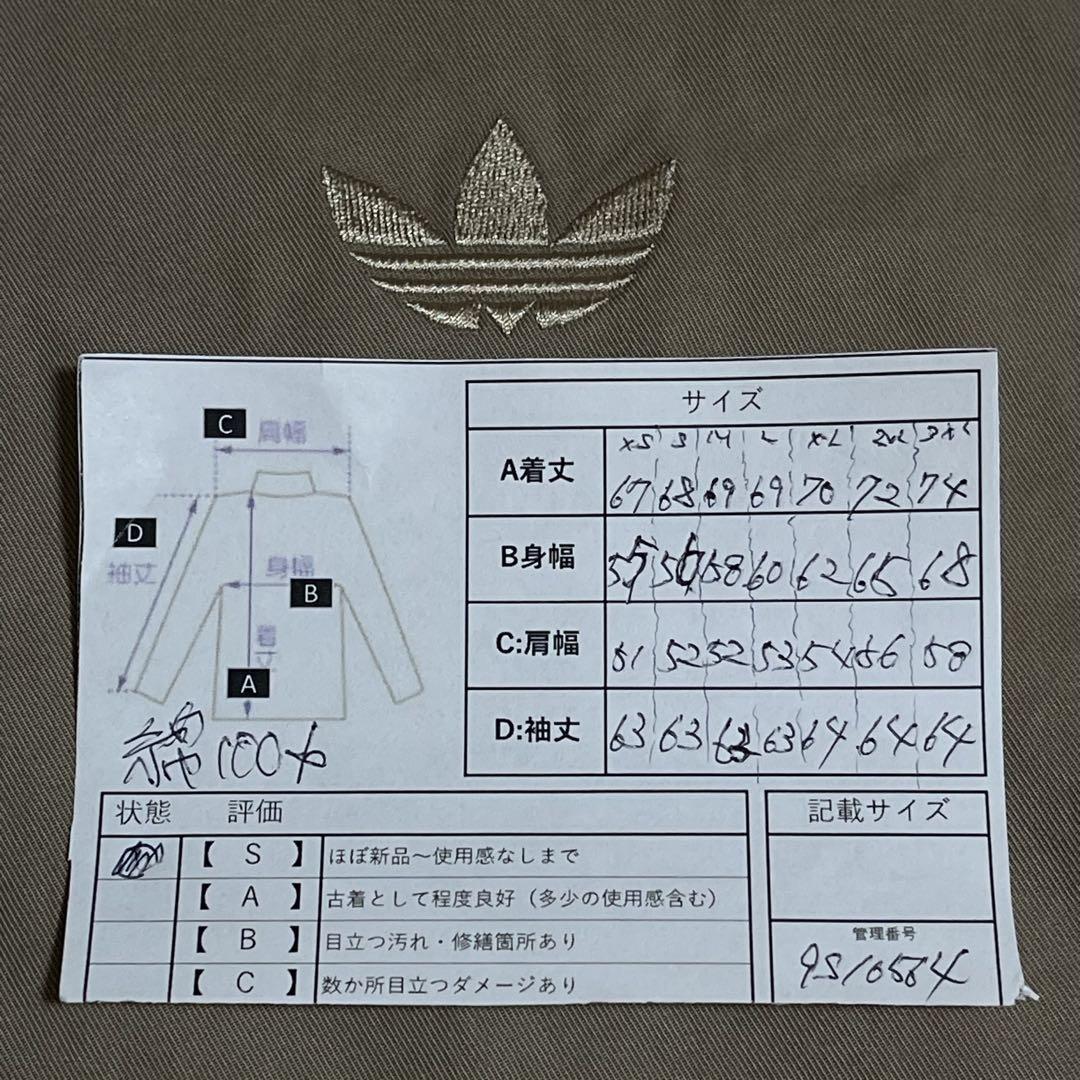 サイズ
C 肩幅
XS S M L XL 2XL 3XL
A着丈 67 68 69 69 70 72 74
D
袖丈
身幅
B
B身幅 56 58 60 62 65 68
着丈
A
C:肩幅 51 52 52 53 54 56 58
D:袖丈 63 63 63 63 64 64 64
綿100%
状態 評価
記載サイズ
【 S 】 ほぼ新品～使用感なしまで
【 A 】 古着として程度良好（多少の使用感含む）
【 B 】 目立つ汚れ・修繕箇所あり
管理番号
【 C 】 数か所目立つダメージあり
9S10564